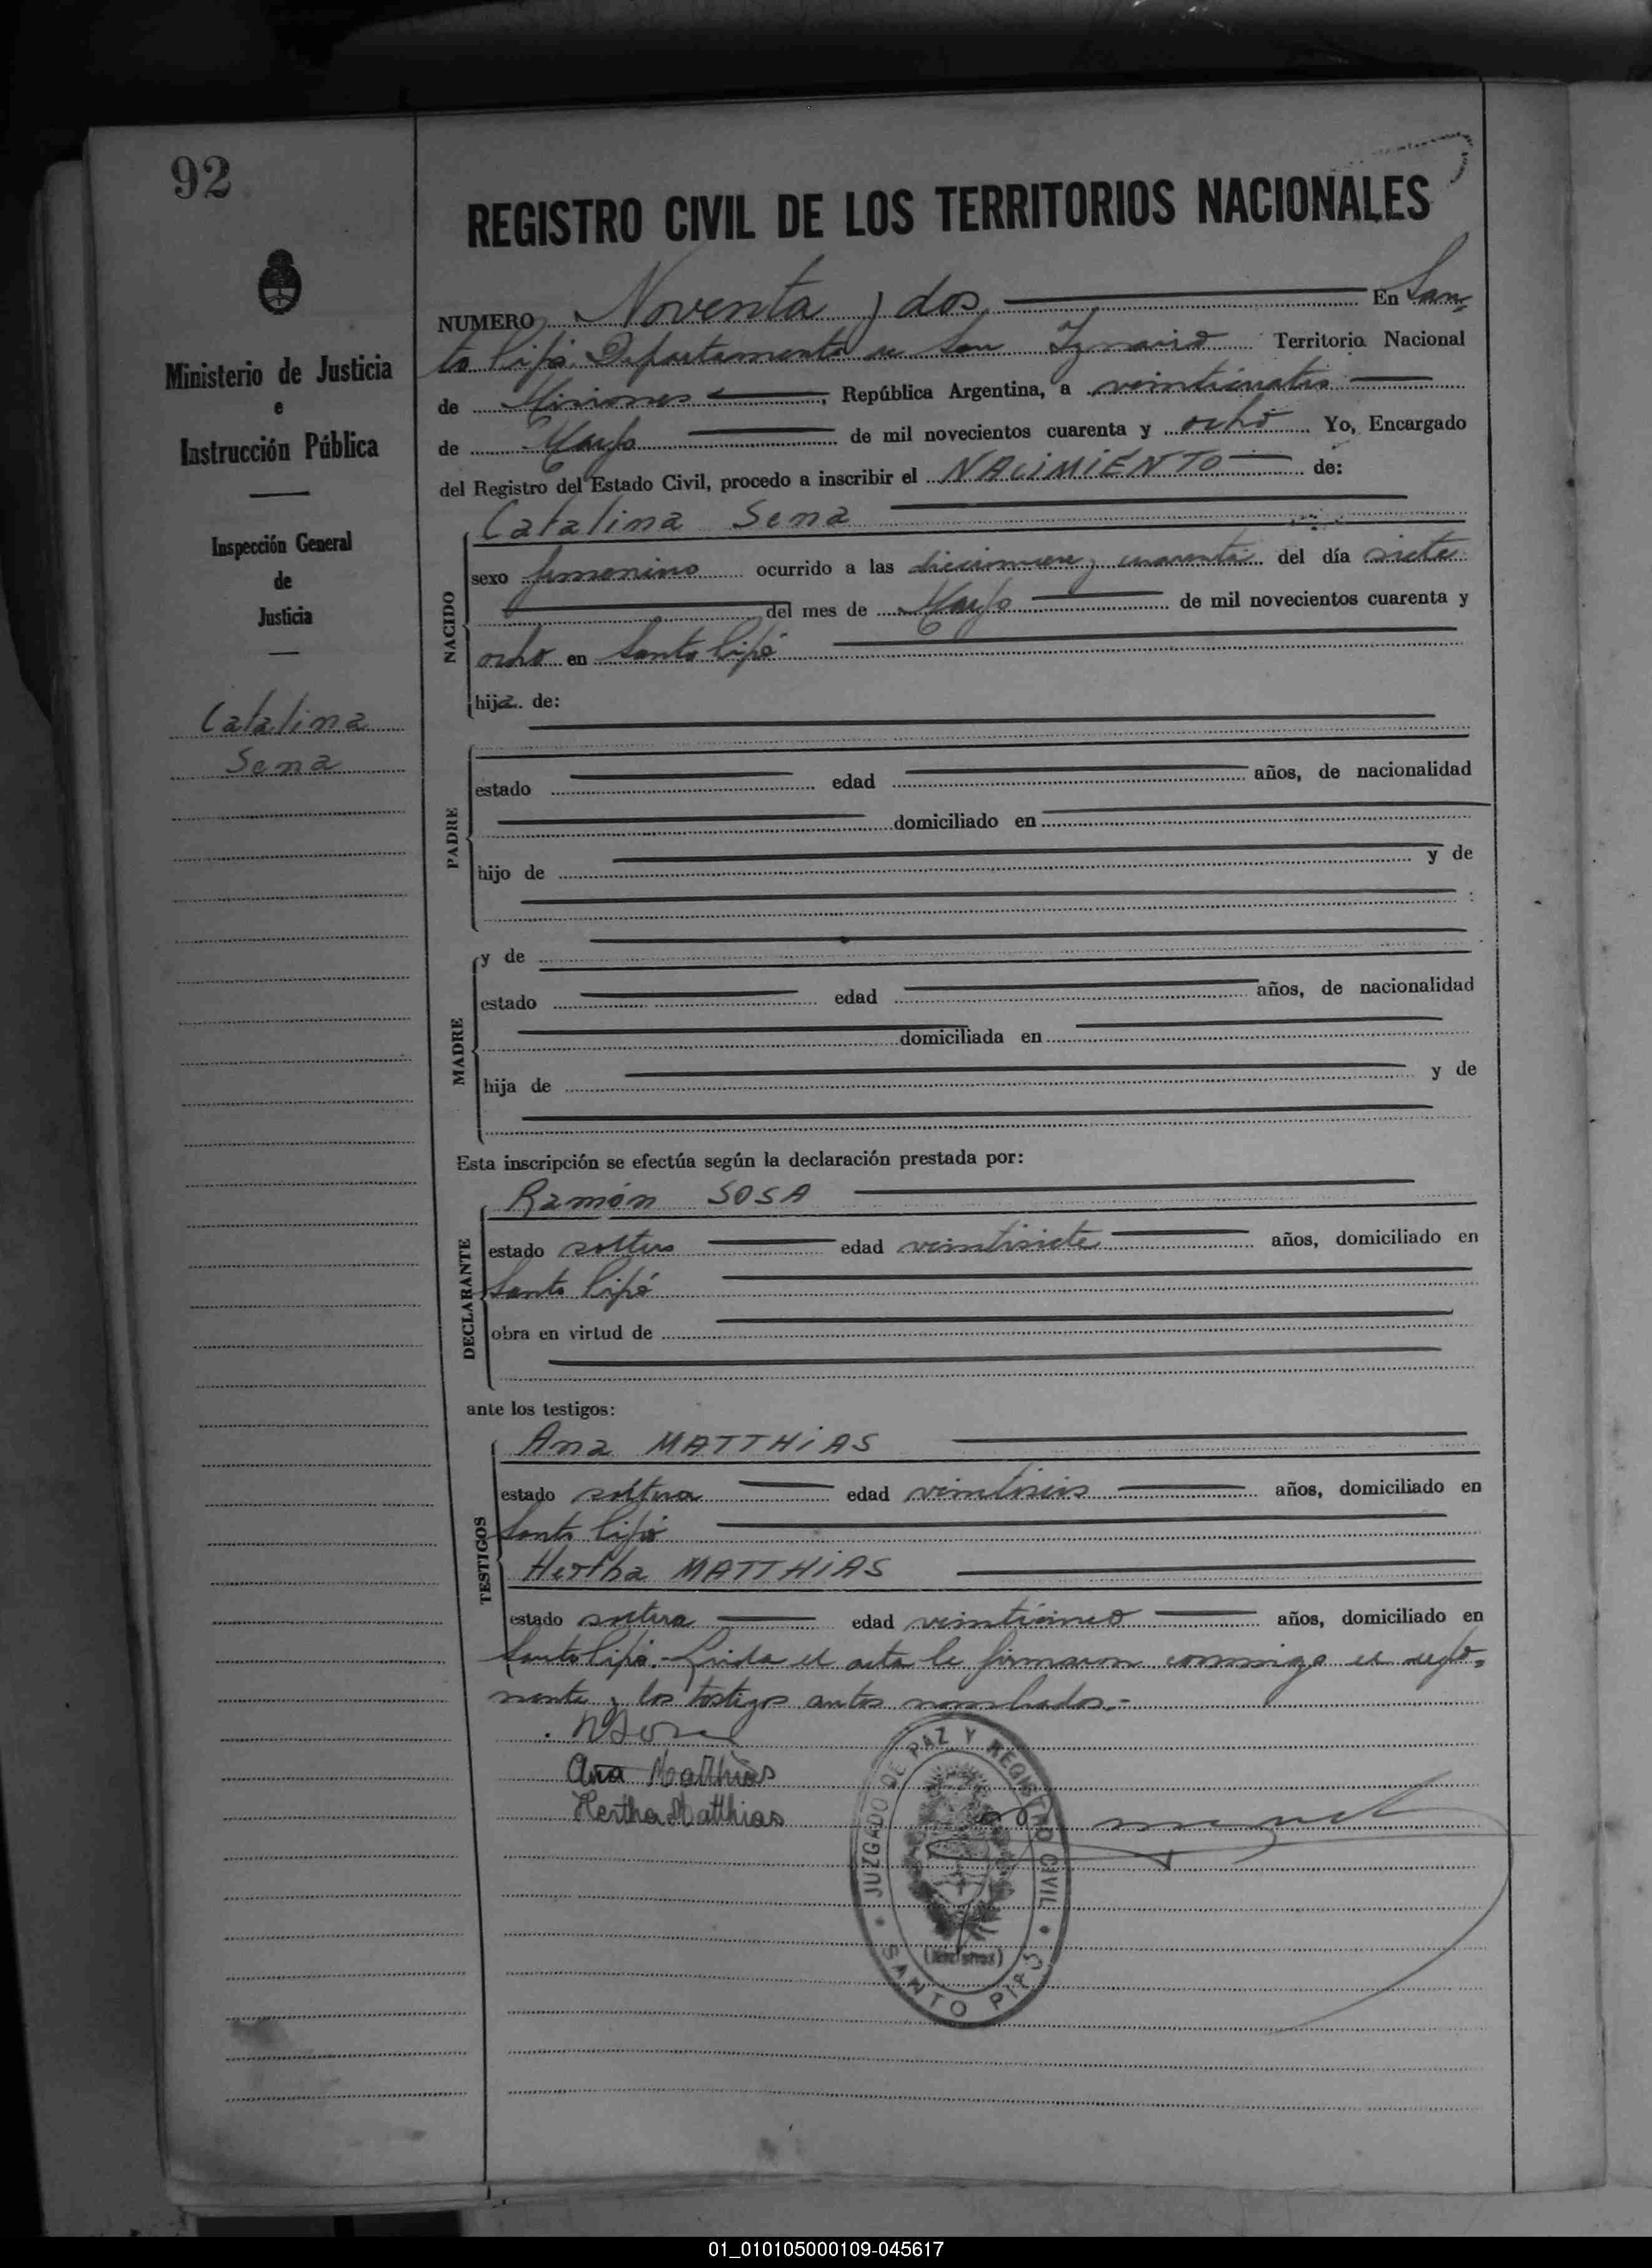 92
REGISTRO CIVIL DE LOS TERRITORIOS NACIONALES
NUMERO Noventa y dos En San-
to Pipó Departamento de San Ignacio Territorio Nacional
de Misiones, República Argentina, a veinticuatro
de Mayo de mil novecientos cuarenta y ocho Yo, Encargado
del Registro del Estado Civil, procedo a inscribir el NACIMIENTO de:
Ministerio de Justicia
e
Instrucción Pública
Inspección General
de
Justicia
Catalina
Sena
NACIDO
Catalina Sena
sexo femenino ocurrido a las diecinueve y cuarenta del día siete
del mes de Mayo de mil novecientos cuarenta y
ocho en Santo Pipó
hija de:
PADRE
estado edad años, de nacionalidad
domiciliado en
hijo de y de
:
MADRE
y de
estado edad años, de nacionalidad
domiciliada en
hija de y de
Esta inscripción se efectúa según la declaración prestada por:
DECLARANTE
Ramón SOSA
estado soltero edad veintisiete años, domiciliado en
Santo Pipó
obra en virtud de
ante los testigos:
TESTIGOS
Ana MATTHIAS
estado soltera edad veintiseis años, domiciliado en
Santo Pipó
Hertha MATTHIAS
estado soltera edad veinticinco años, domiciliado en
Santo Pipó.- Leida el acta la firmaron conmigo el
y los testigos antes nombrados.-
RSosa
Ana Matthias
Hertha Matthias
JUZGADO DE PAZ Y REGISTRO CIVIL
(Misiones)
SANTO PIPÓ
01_010105000109-045617